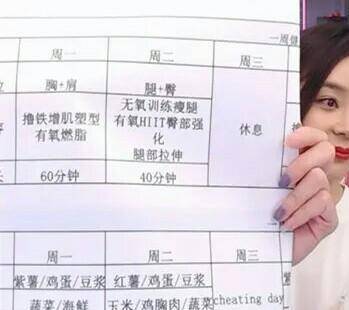 一周健
周一 周二 周三
胸+肩 腿+臀
撸铁增肌塑型
有氧燃脂
无氧训练瘦腿
有氧HIIT臀部强
化
腿部拉伸
休息
60分钟 40分钟
一周
周一 周二 周三
紫薯/鸡蛋/豆浆 红薯/鸡蛋/豆浆
蔬菜/海鲜 玉米/鸡胸肉/蔬菜 cheating day